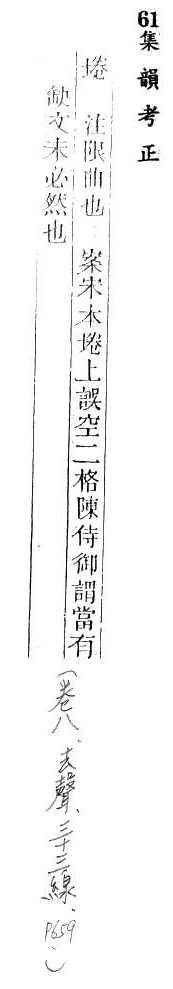 61集韻考正
埢 注限曲也 案宋本埢上誤空二格陳侍御謂當有
缺文未必然也
(卷八、去聲、三十三線、P659)